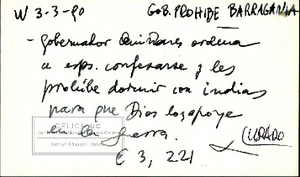 W 3-3-90 GOB. PROHIBE BARRAGANIA
- Gobernador Quiñones ordena
a esps. confesarse y les
prohíbe dormir con indias
para que Dios los apoye
en la guerra.
(LIBRADO)
€ 3, 221